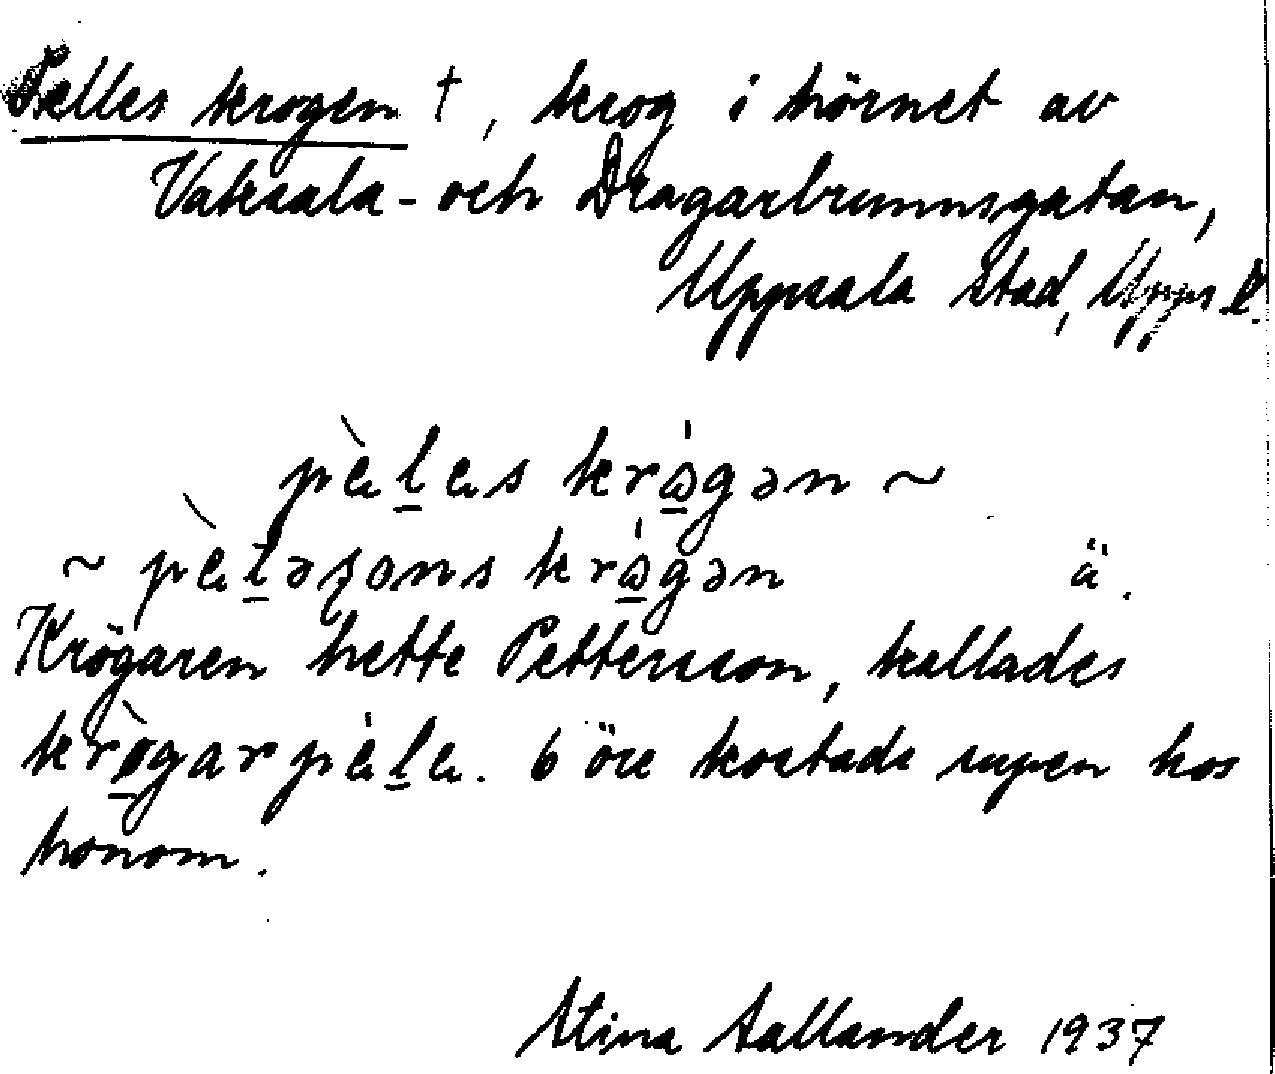 Pelles krogen †, krog i hörnet av
Vaksala- och Dragarbrunnsgatan,
Uppsala stad, Upps. l.
pɛ̀lɛs krógən ~
~ pɛ̀təʂons krógən ä.
Krögaren hette Pettersson, kallades
krø̀garpɛ̀lɛ. 6 öre kostade supen hos
honom.
Stina Sallander 1937